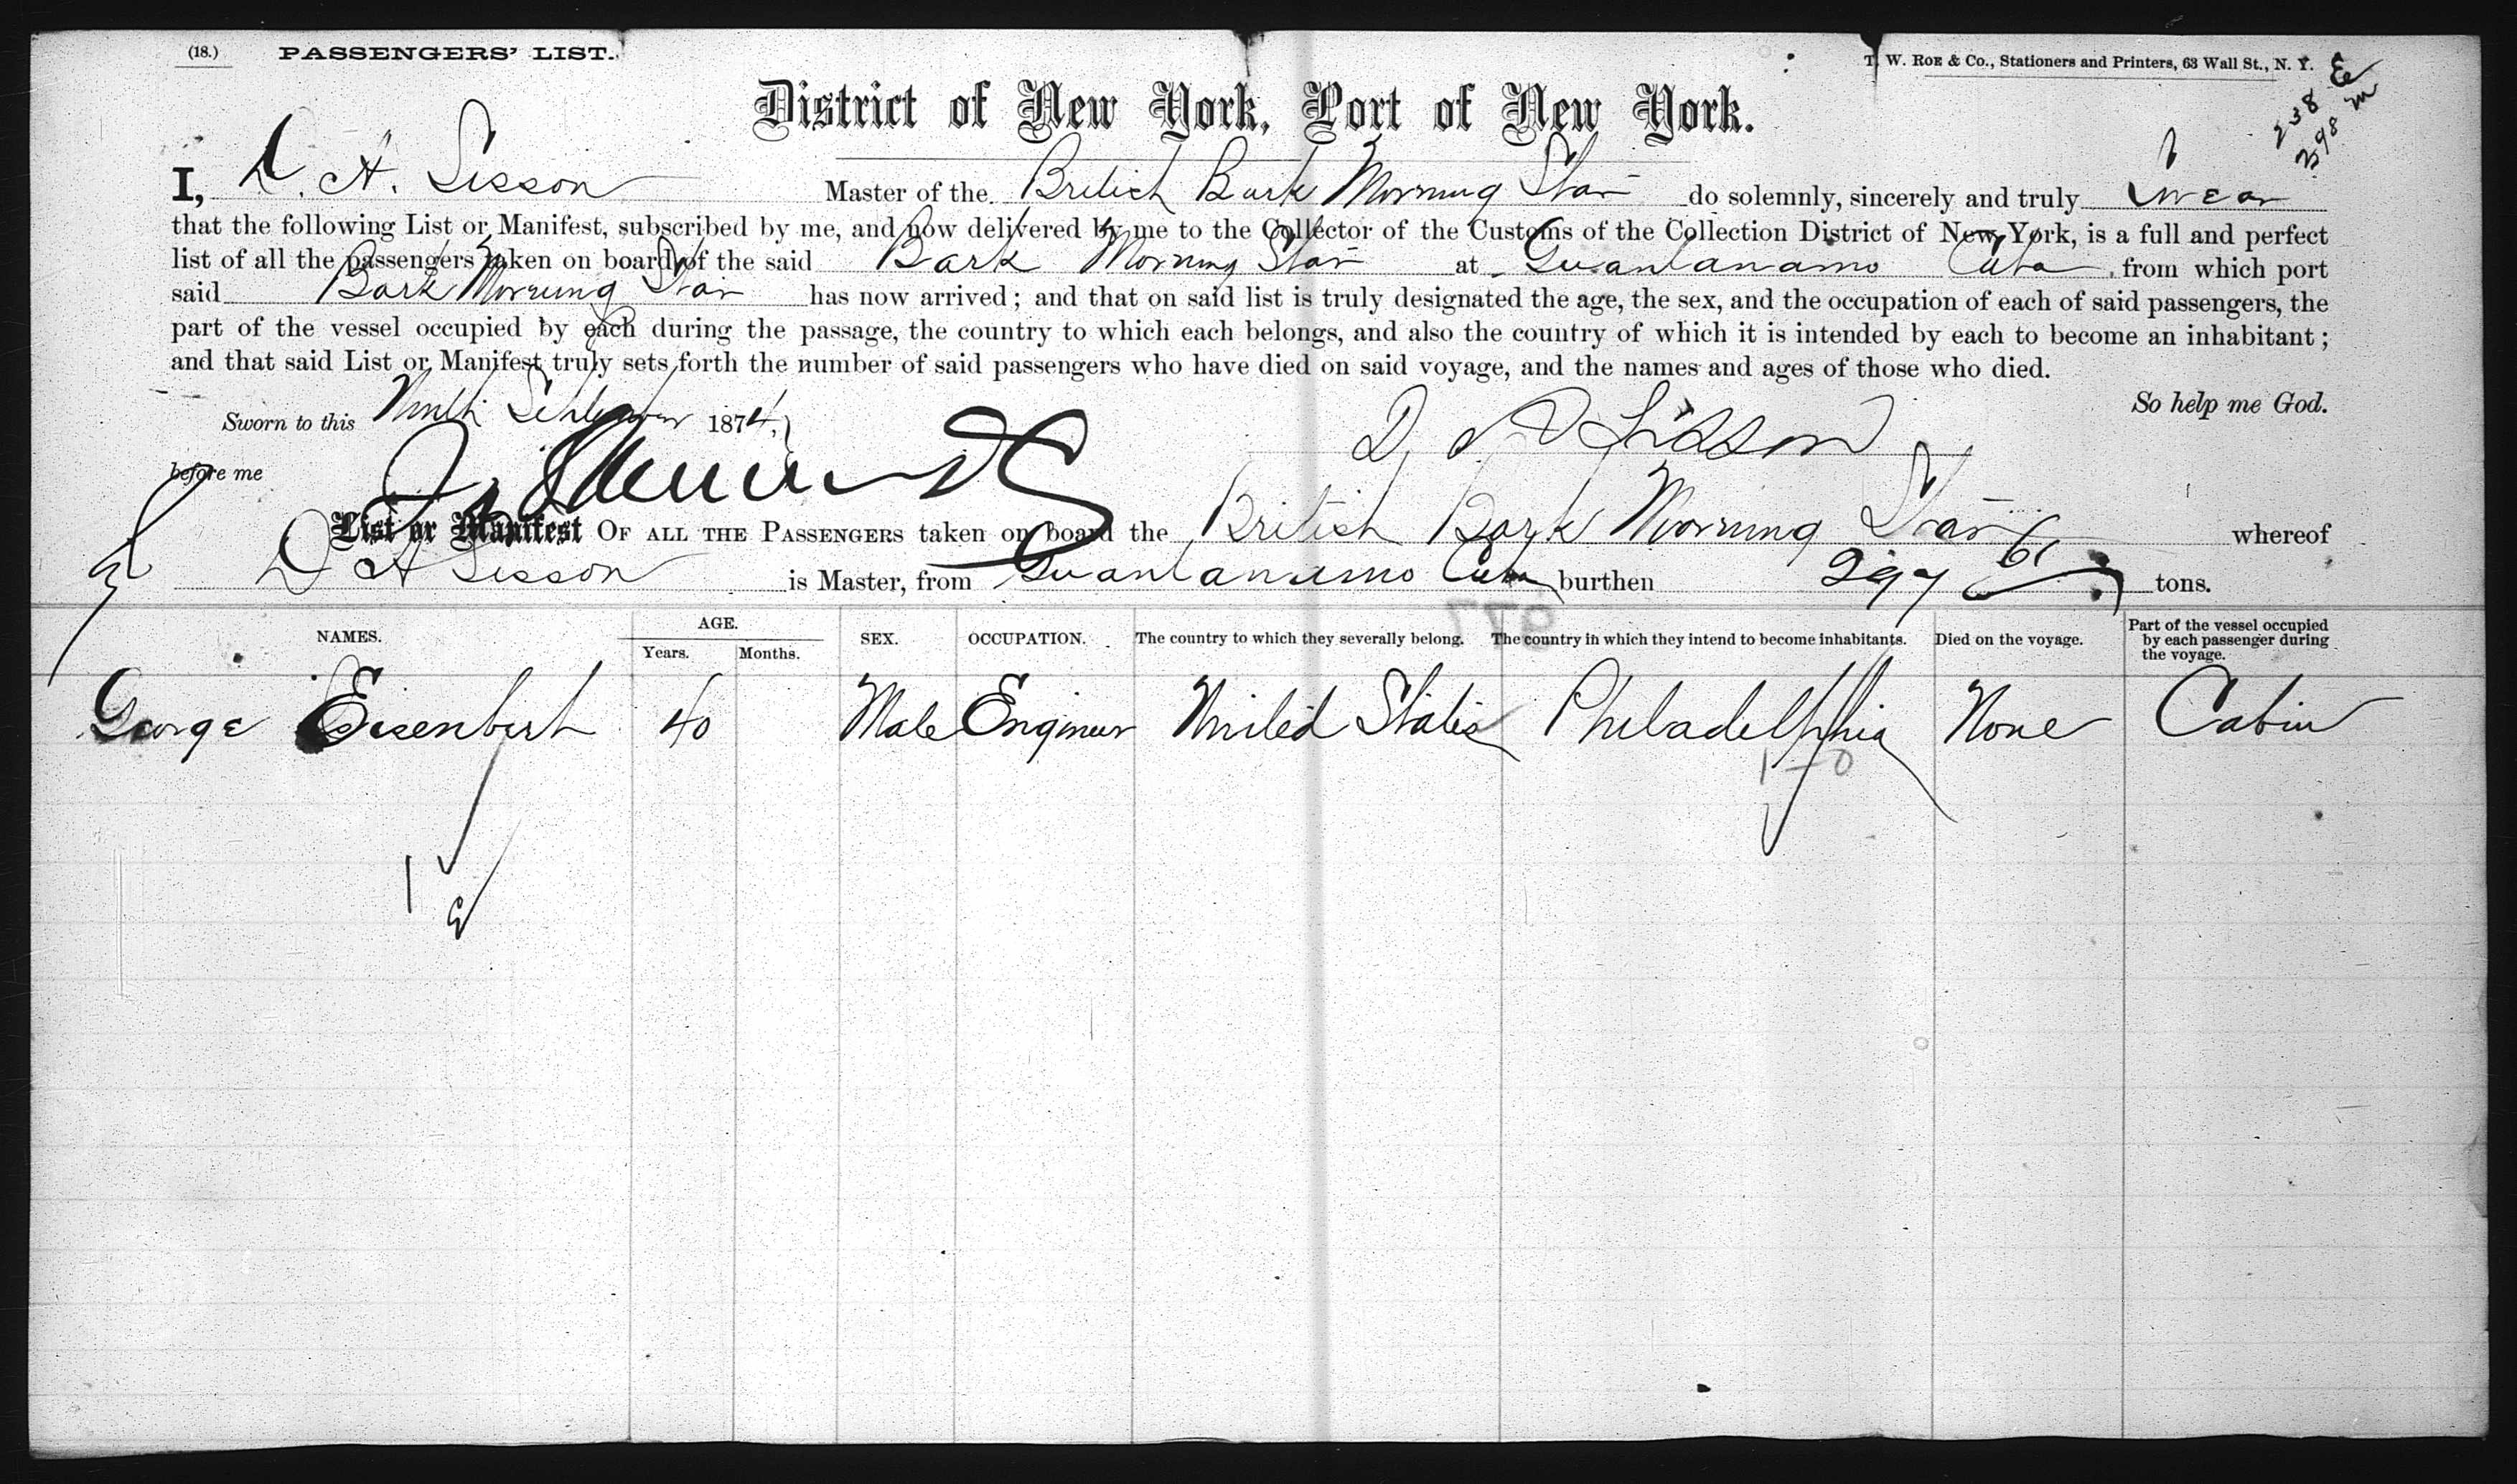 (18.) PASSENGERS' LIST. T. W. ROE & Co., Stationers and Printers, 63 Wall St., N. Y.
238 E
298 m
District of New York, Port of New York.
I, D. A. Sisson Master of the British Bark Morning Star do solemnly, sincerely and truly Swear
that the following List or Manifest, subscribed by me, and now delivered by me to the Collector of the Customs of the Collection District of New York, is a full and perfect
list of all the passengers taken on board of the said Bark Morning Star at Guantanamo Cuba, from which port
said Bark Morning Star has now arrived; and that on said list is truly designated the age, the sex, and the occupation of each of said passengers, the
part of the vessel occupied by each during the passage, the country to which each belongs, and also the country of which it is intended by each to become an inhabitant;
and that said List or Manifest truly sets forth the number of said passengers who have died on said voyage, and the names and ages of those who died.
So help me God.
Sworn to this Ninth September 1874,
D A Sisson
before me
List or Manifest OF ALL THE PASSENGERS taken on board the British Bark Morning Star whereof
D A Sisson is Master, from Guantanamo Cuba burthen 297 61 tons.
977
NAMES. AGE. Years. Months. SEX. OCCUPATION. The country to which they severally belong. The country in which they intend to become inhabitants. Died on the voyage. Part of the vessel occupied by each passenger during the voyage.
George Eisenbert 40 Male Engineer United States Philadelphia None Cabin
1-0
1